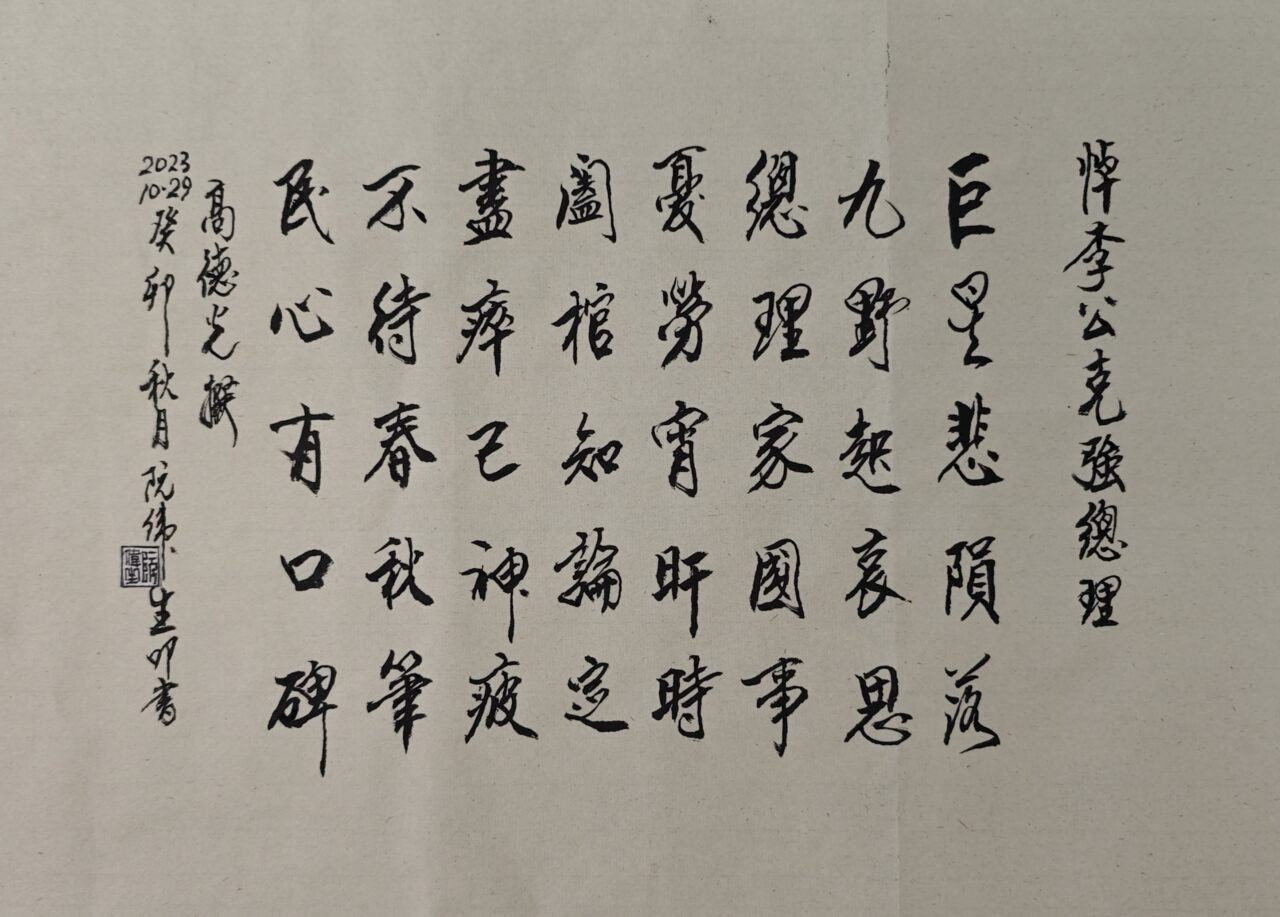 悼李公克强總理
巨星悲隕落
九野起哀思
總理家國事
憂勞宵旰時
闔棺知論定
盡瘁已神疲
不待春秋筆
民心有口碑
高德光撰
2023
10·29
癸卯秋月阮偉生叩書